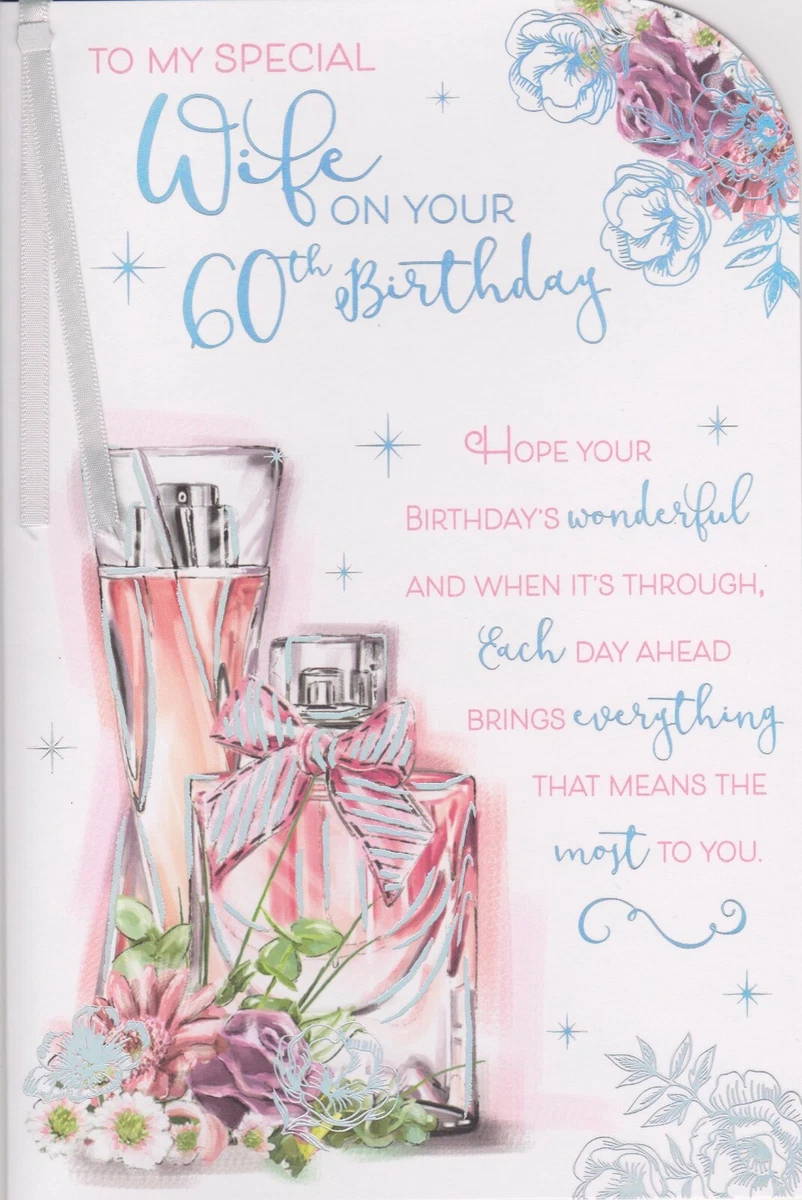 TO MY SPECIAL
Wife
ON YOUR
60th Birthday
HOPE YOUR
BIRTHDAY'S wonderful
AND WHEN IT'S THROUGH,
Each DAY AHEAD
BRINGS everything
THAT MEANS THE
most TO YOU.